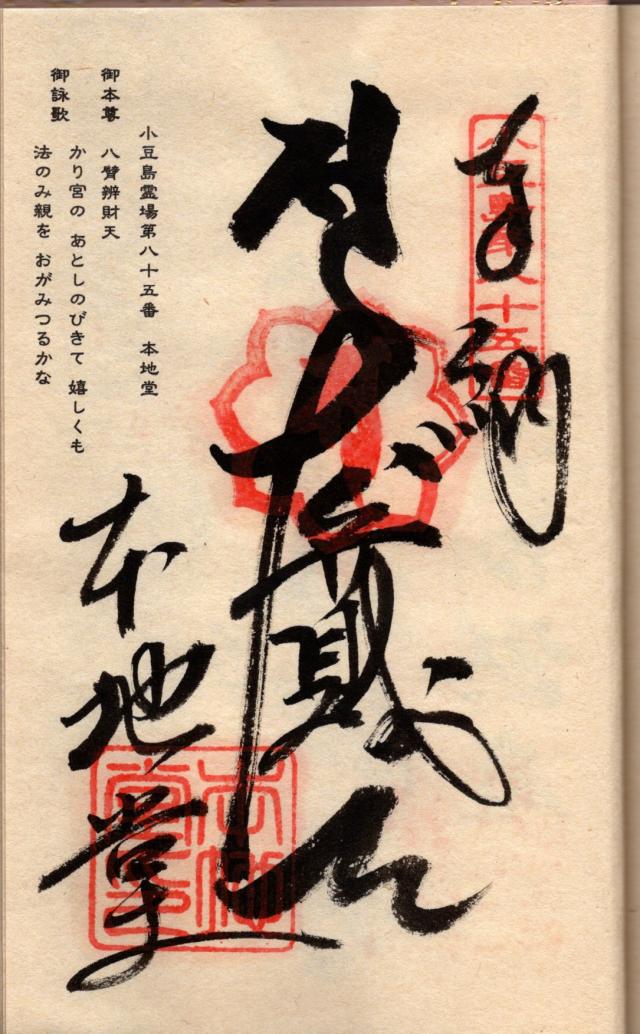 奉納
小豆島第八十五番
小豆島霊場第八十五番 本地堂
御本尊 八臂辨財天
御詠歌 かり宮の あとしのびきて 嬉しくも
法のみ親を おがみつるかな
本地堂